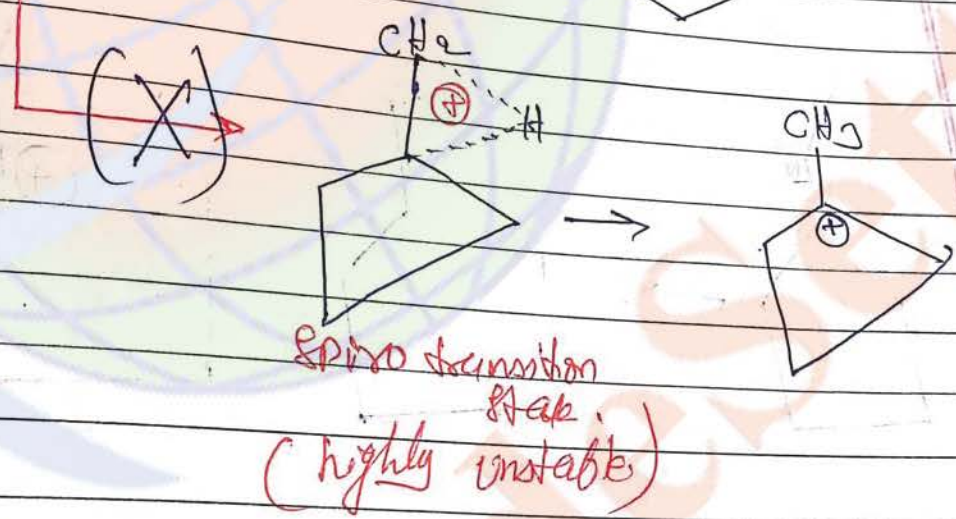 CH2
(X)
⊕
H
CH3
⊕
Spiro transition
state.
(highly unstable)